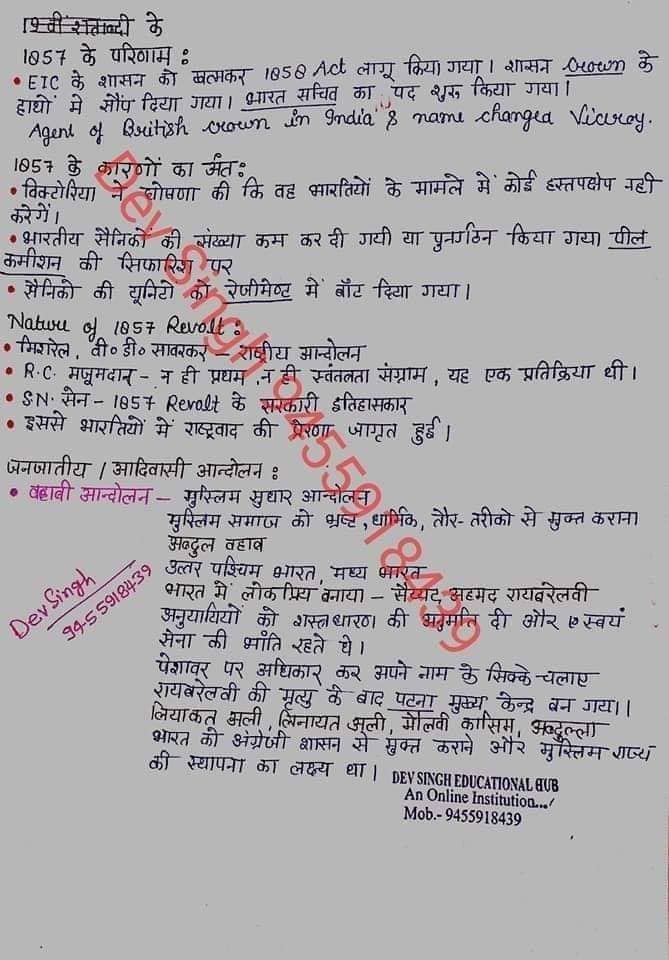 19वीं शताब्दी के
1857 के परिणाम :
• EIC के शासन को खत्मकर 1858 Act लागू किया गया। शासन crown के
हाथों में सौंप दिया गया। भारत सचिव का पद शुरू किया गया।
Agent of British crown in India & name changed Viceroy.
1857 के कारणों का अंत:
• विक्टोरिया ने घोषणा की कि वह भारतियों के मामले में कोई हस्तपक्षेप नही
करेगें।
• भारतीय सैनिकों की संख्या कम कर दी गयी या पुनर्गठन किया गया पील
कमीशन की सिफारिश पर
• सैनिको की यूनिटो को रेजीमेण्ट में बाँट दिया गया।
Nature of 1857 Revolt :
• मिशरेल, वी० डी० सावरकर - राष्ट्रीय आन्दोलन
• R.C. मजूमदार - न ही प्रथम, न ही स्वंतत्रता संग्राम, यह एक प्रतिक्रिया थी।
• S.N. सेन - 1857 Revolt के सरकारी इतिहासकार
• इससे भारतियों में राष्ट्रवाद की प्रेरणा जागृत हुई।
जनजातीय / आदिवासी आन्दोलन :
• वहाबी आन्दोलन - मुस्लिम सुधार आन्दोलन
मुस्लिम समाज को भ्रष्ट, धार्मिक, तौर-तरीको से मुक्त कराना
अब्दुल वहाब
उत्तर पश्चिम भारत, मध्य भारत
भारत में लोकप्रिय बनाया - सैय्यद अहमद रायबरेलवी
अनुयायियों को शस्त्रधारण की अनुमति दी और स्वयं
सेना की भाँति रहते थे।
पेशावर पर अधिकार कर अपने नाम के सिक्के चलाए
रायबरेलवी की मृत्यु के बाद पटना मुख्य केन्द्र बन गया।।
लियाकत अली, लिनायत अली, मौलवी कासिम, अब्दुल्ला
भारत को अंग्रेजी शासन से मुक्त कराने और मुस्लिम राज्य
की स्थापना का लक्ष्य था।
Dev Singh
9455918439
Dev Singh 9455918439
DEV SINGH EDUCATIONAL HUB
An Online Institution...
Mob.- 9455918439